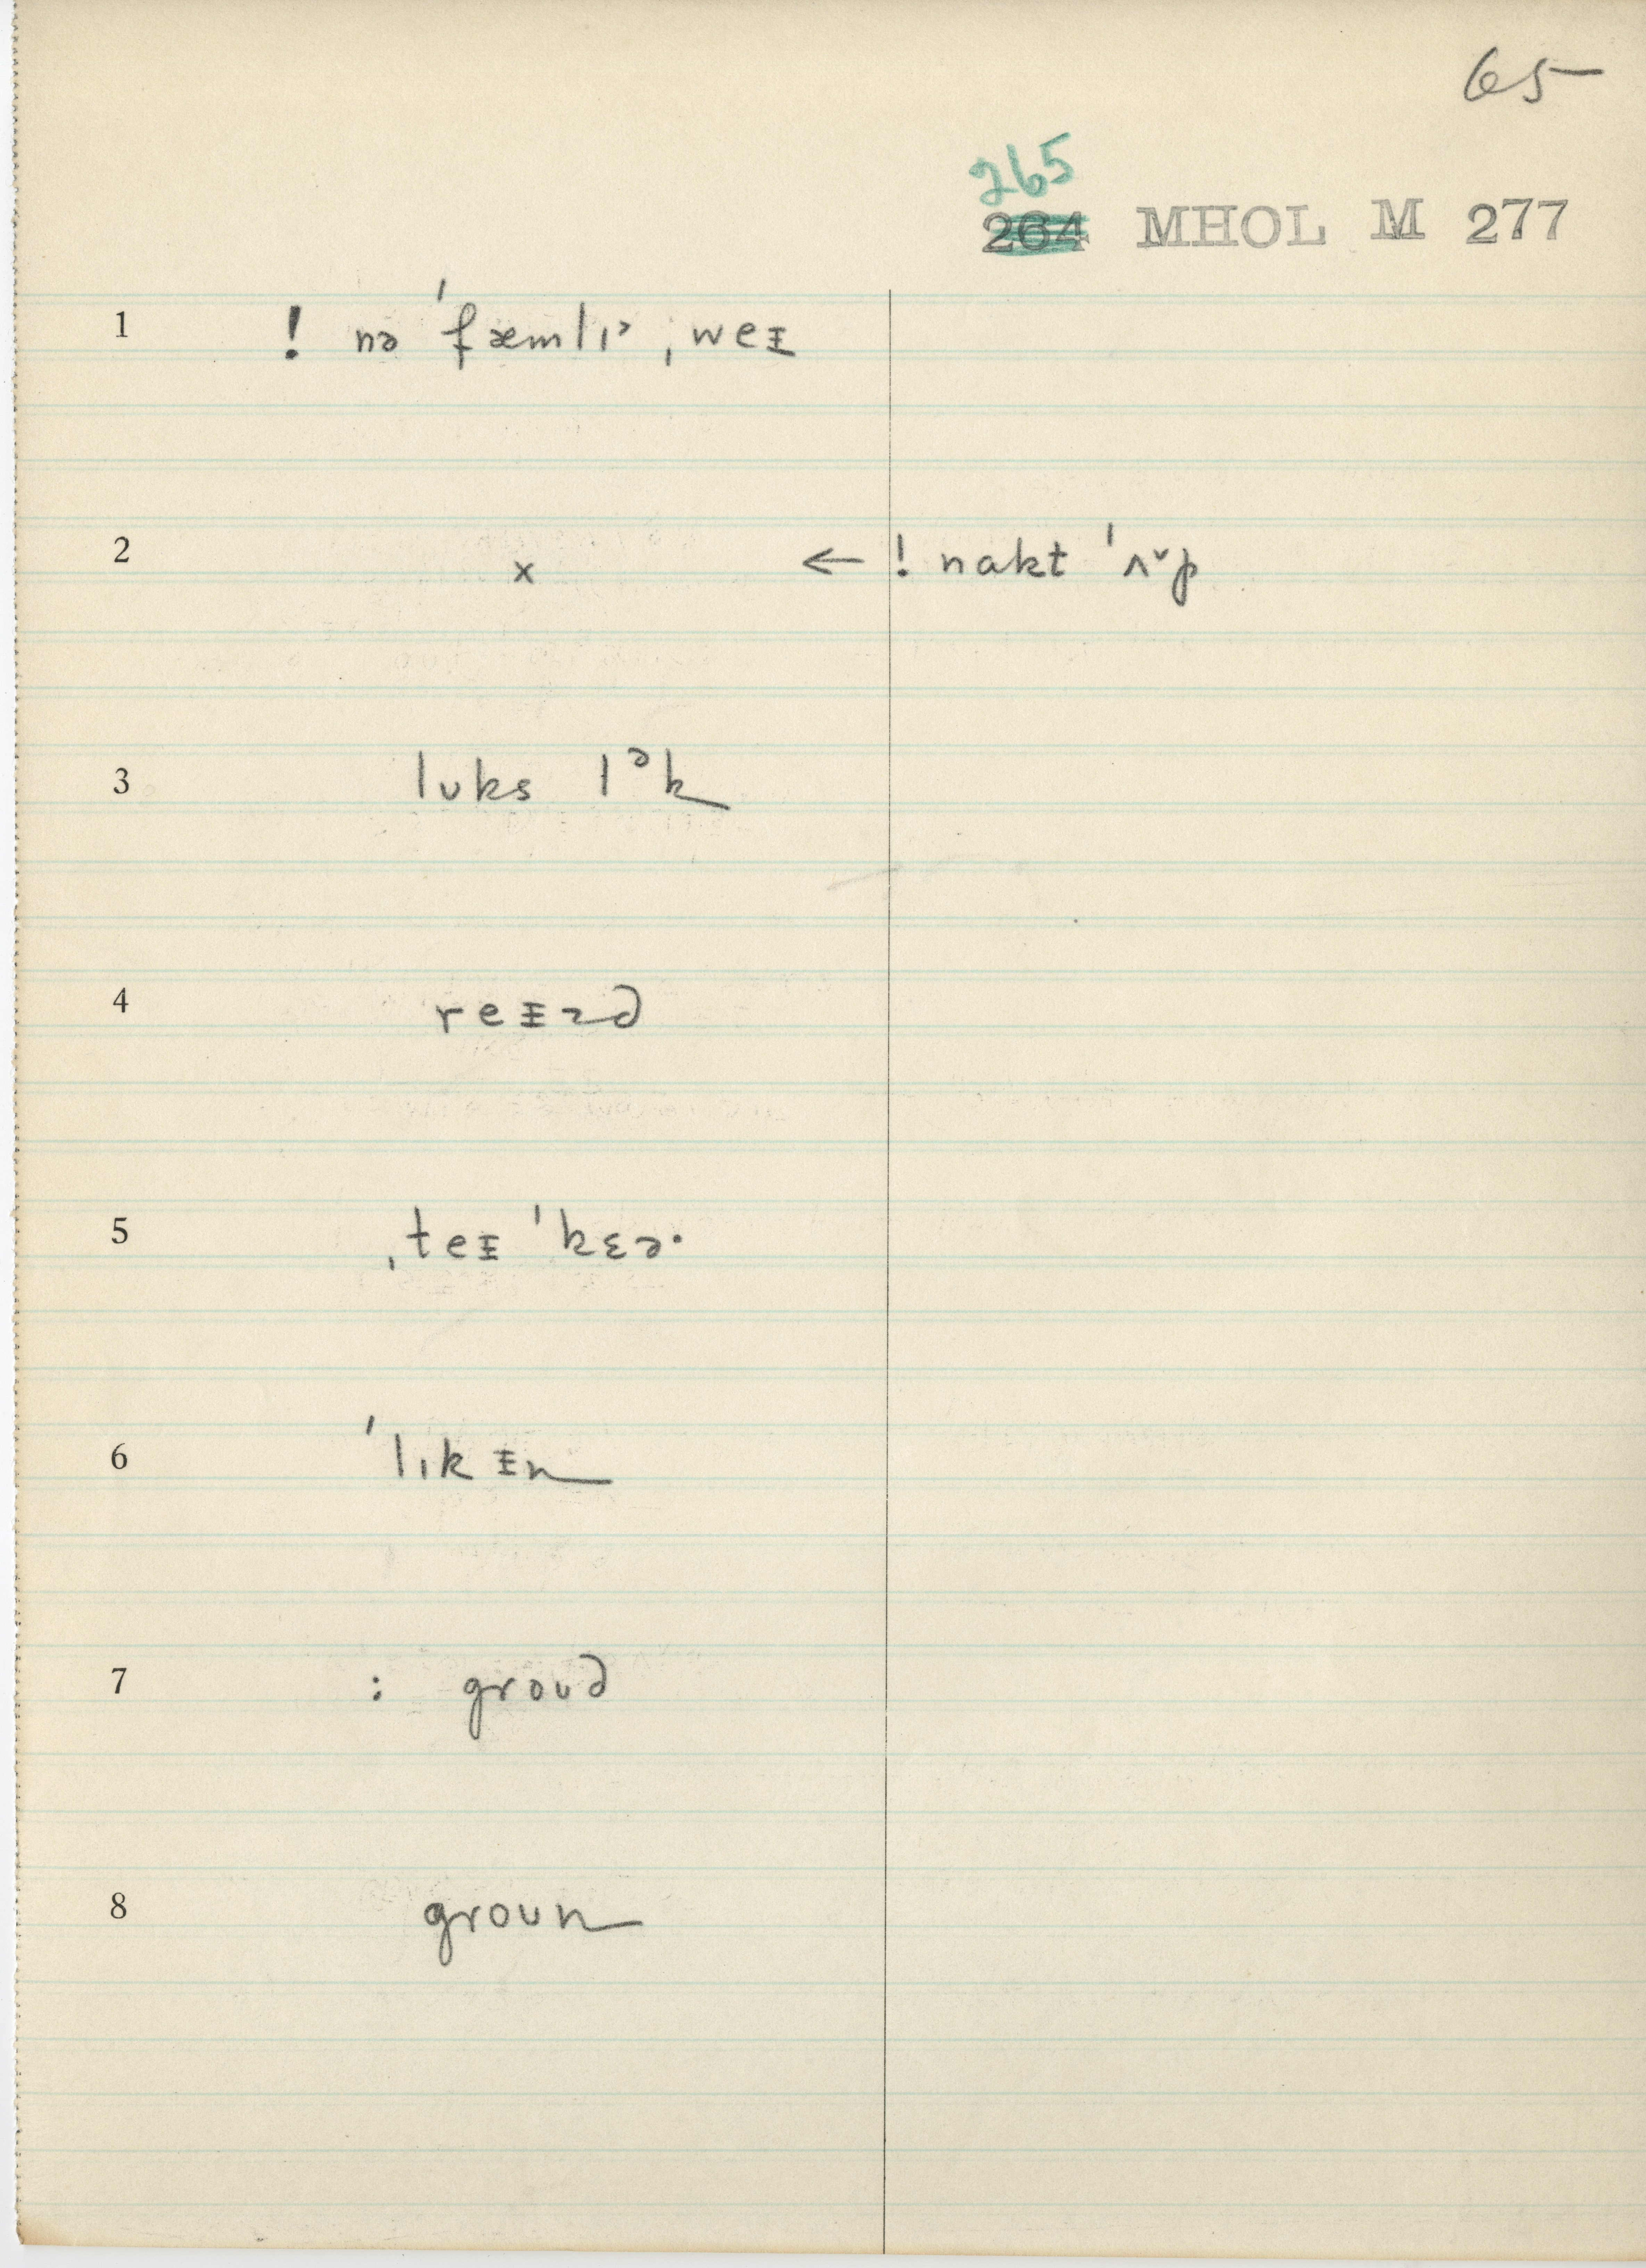 65
265
264 MHOL M 277
1 ! nə ˈfæmlɪᵊ ˌweᵻ
2 x ← ! nakt ˈʌ˅p
3 lʊks lᵊk
4 reᵻzd
5 ˌteᵻ ˈkɛɚ
6 ˈlɪkᵻn
7 : groud
8 groun